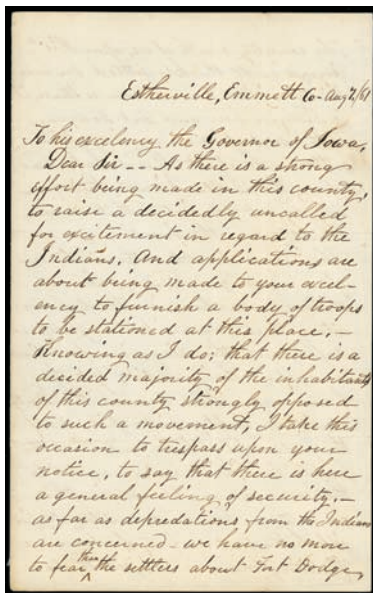 Estherville, Emmett Co- Aug 7/61
To his excelency the Governor of Iowa,
Dear Sir -- As there is a strong
effort being made in this county,
to raise a decidedly uncalled
for excitement in regard to the
Indians. And applications are
about being made to your excel-
ency to furnish a body of troops
to be stationed at this place,-
Knowing as I do; that there is a
decided majority of the inhabitants
of this county strongly opposed
to such a movement, I take this
occasion to trespass upon your
notice, to say that there is here
a general feeling of security,-
as far as depredations from the Indians
are concerned - we have no more
to fear than the settlers about Fort Dodge,